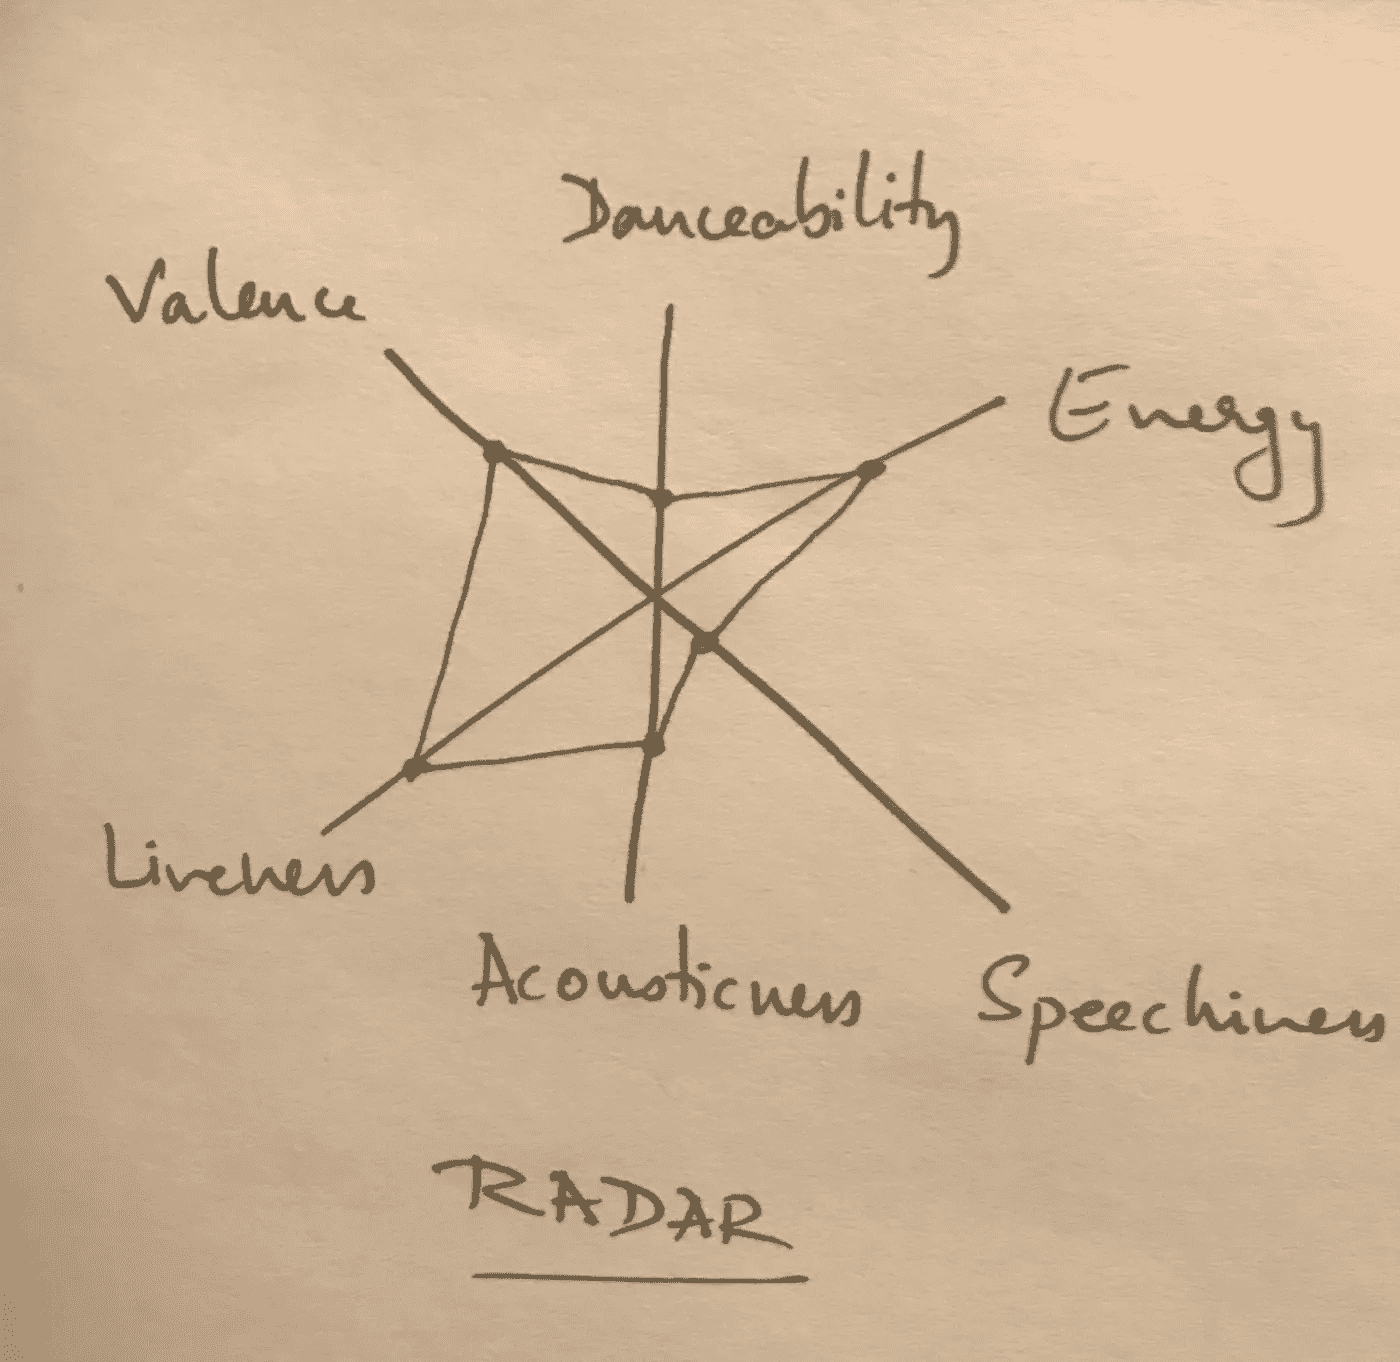 Danceability
Valence
Energy
Liveness
Acousticness
Speechiness
RADAR